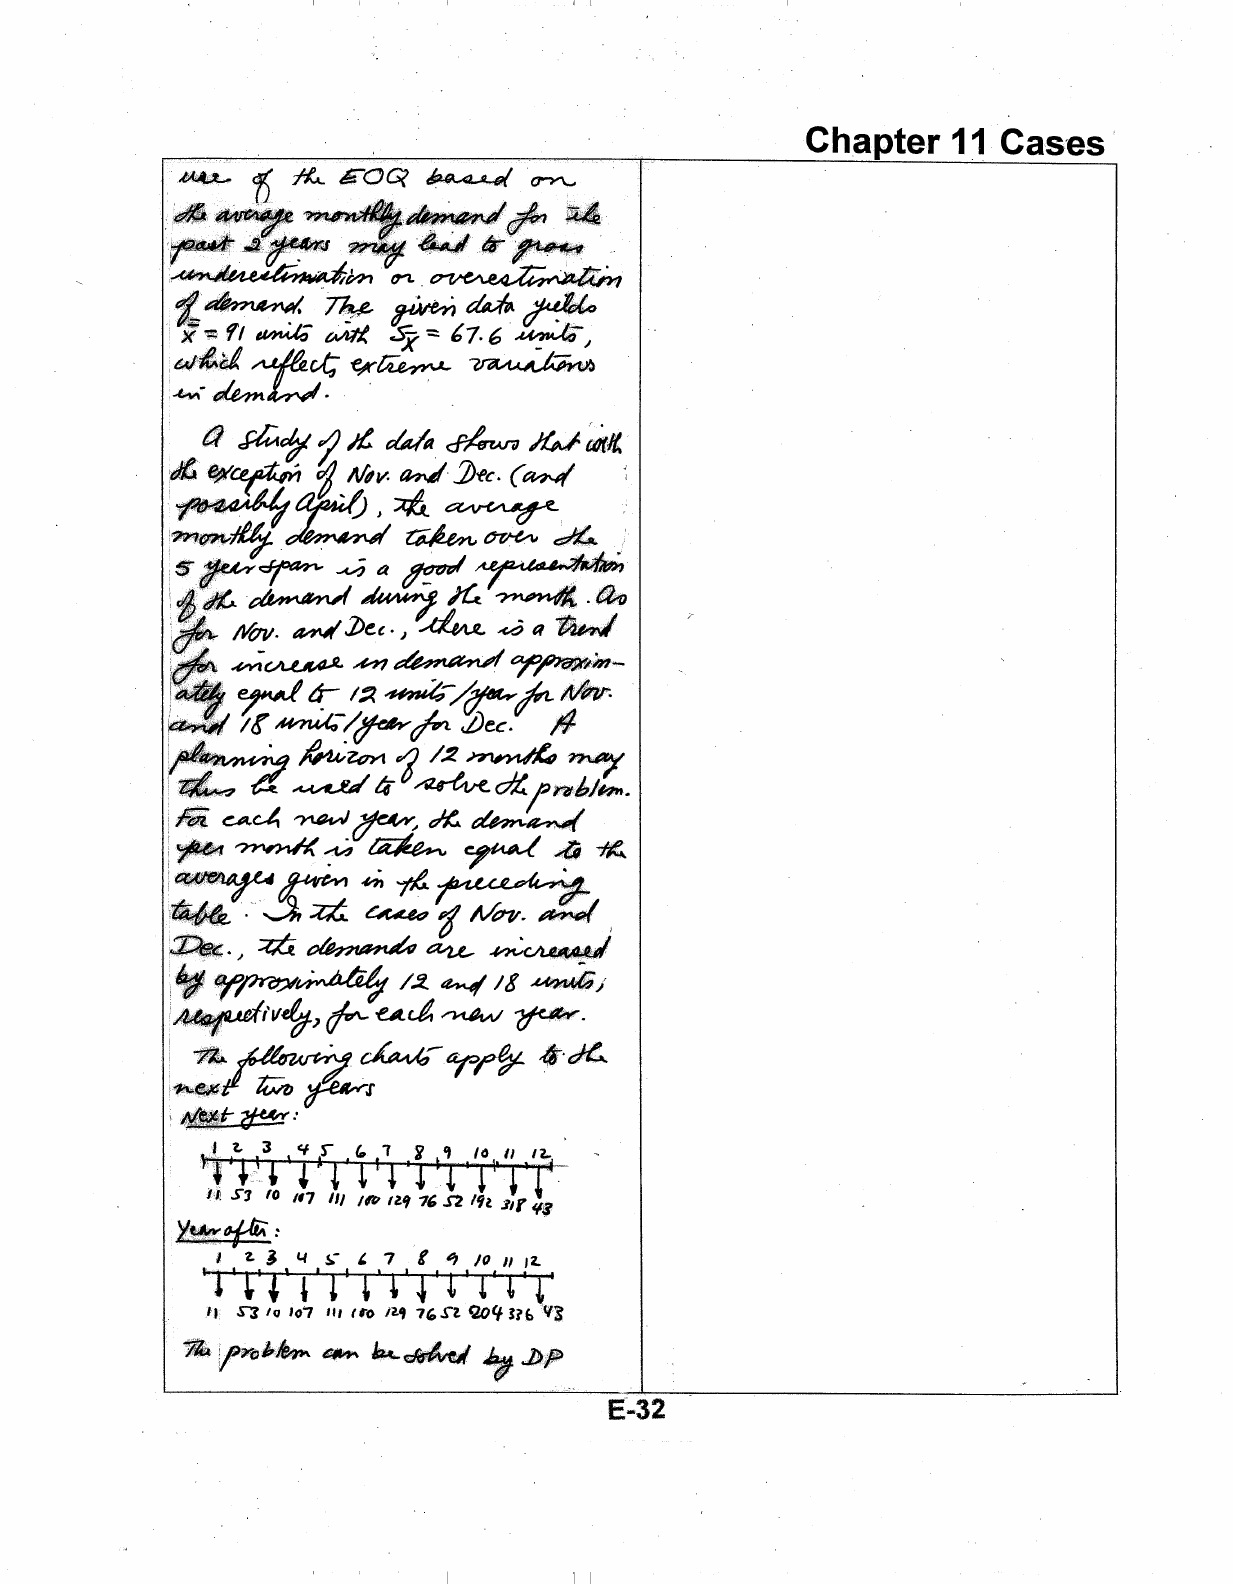 Chapter 11 Cases
use of the EOQ based on
the average monthly demand for the
past 2 years may lead to gross
underestimation or overestimation
of demand. The given data yields
x̿ = 91 units with Sx̄ = 67.6 units,
which reflects extreme variations
in demand.
A study of the data shows that with
the exception of Nov. and Dec. (and
possibly April), the average
monthly demand taken over the
5 year span is a good representation
of the demand during the month. As
for Nov. and Dec., there is a trend
for increase in demand approxim-
ately equal to 12 units/year for Nov.
and 18 units/year for Dec. A
planning horizon of 12 months may
thus be used to solve the problem.
For each new year, the demand
per month is taken equal to the
averages given in the preceding
table. In the cases of Nov. and
Dec., the demands are increased
by approximately 12 and 18 units,
respectively, for each new year.
The following charts apply to the
next two years
Next year:
1 2 3 4 5 6 7 8 9 10 11 12
11 53 10 107 111 180 129 76 52 192 318 43
Year after:
1 2 3 4 5 6 7 8 9 10 11 12
11 53 10 107 111 180 129 76 52 204 336 43
The problem can be solved by DP
E-32